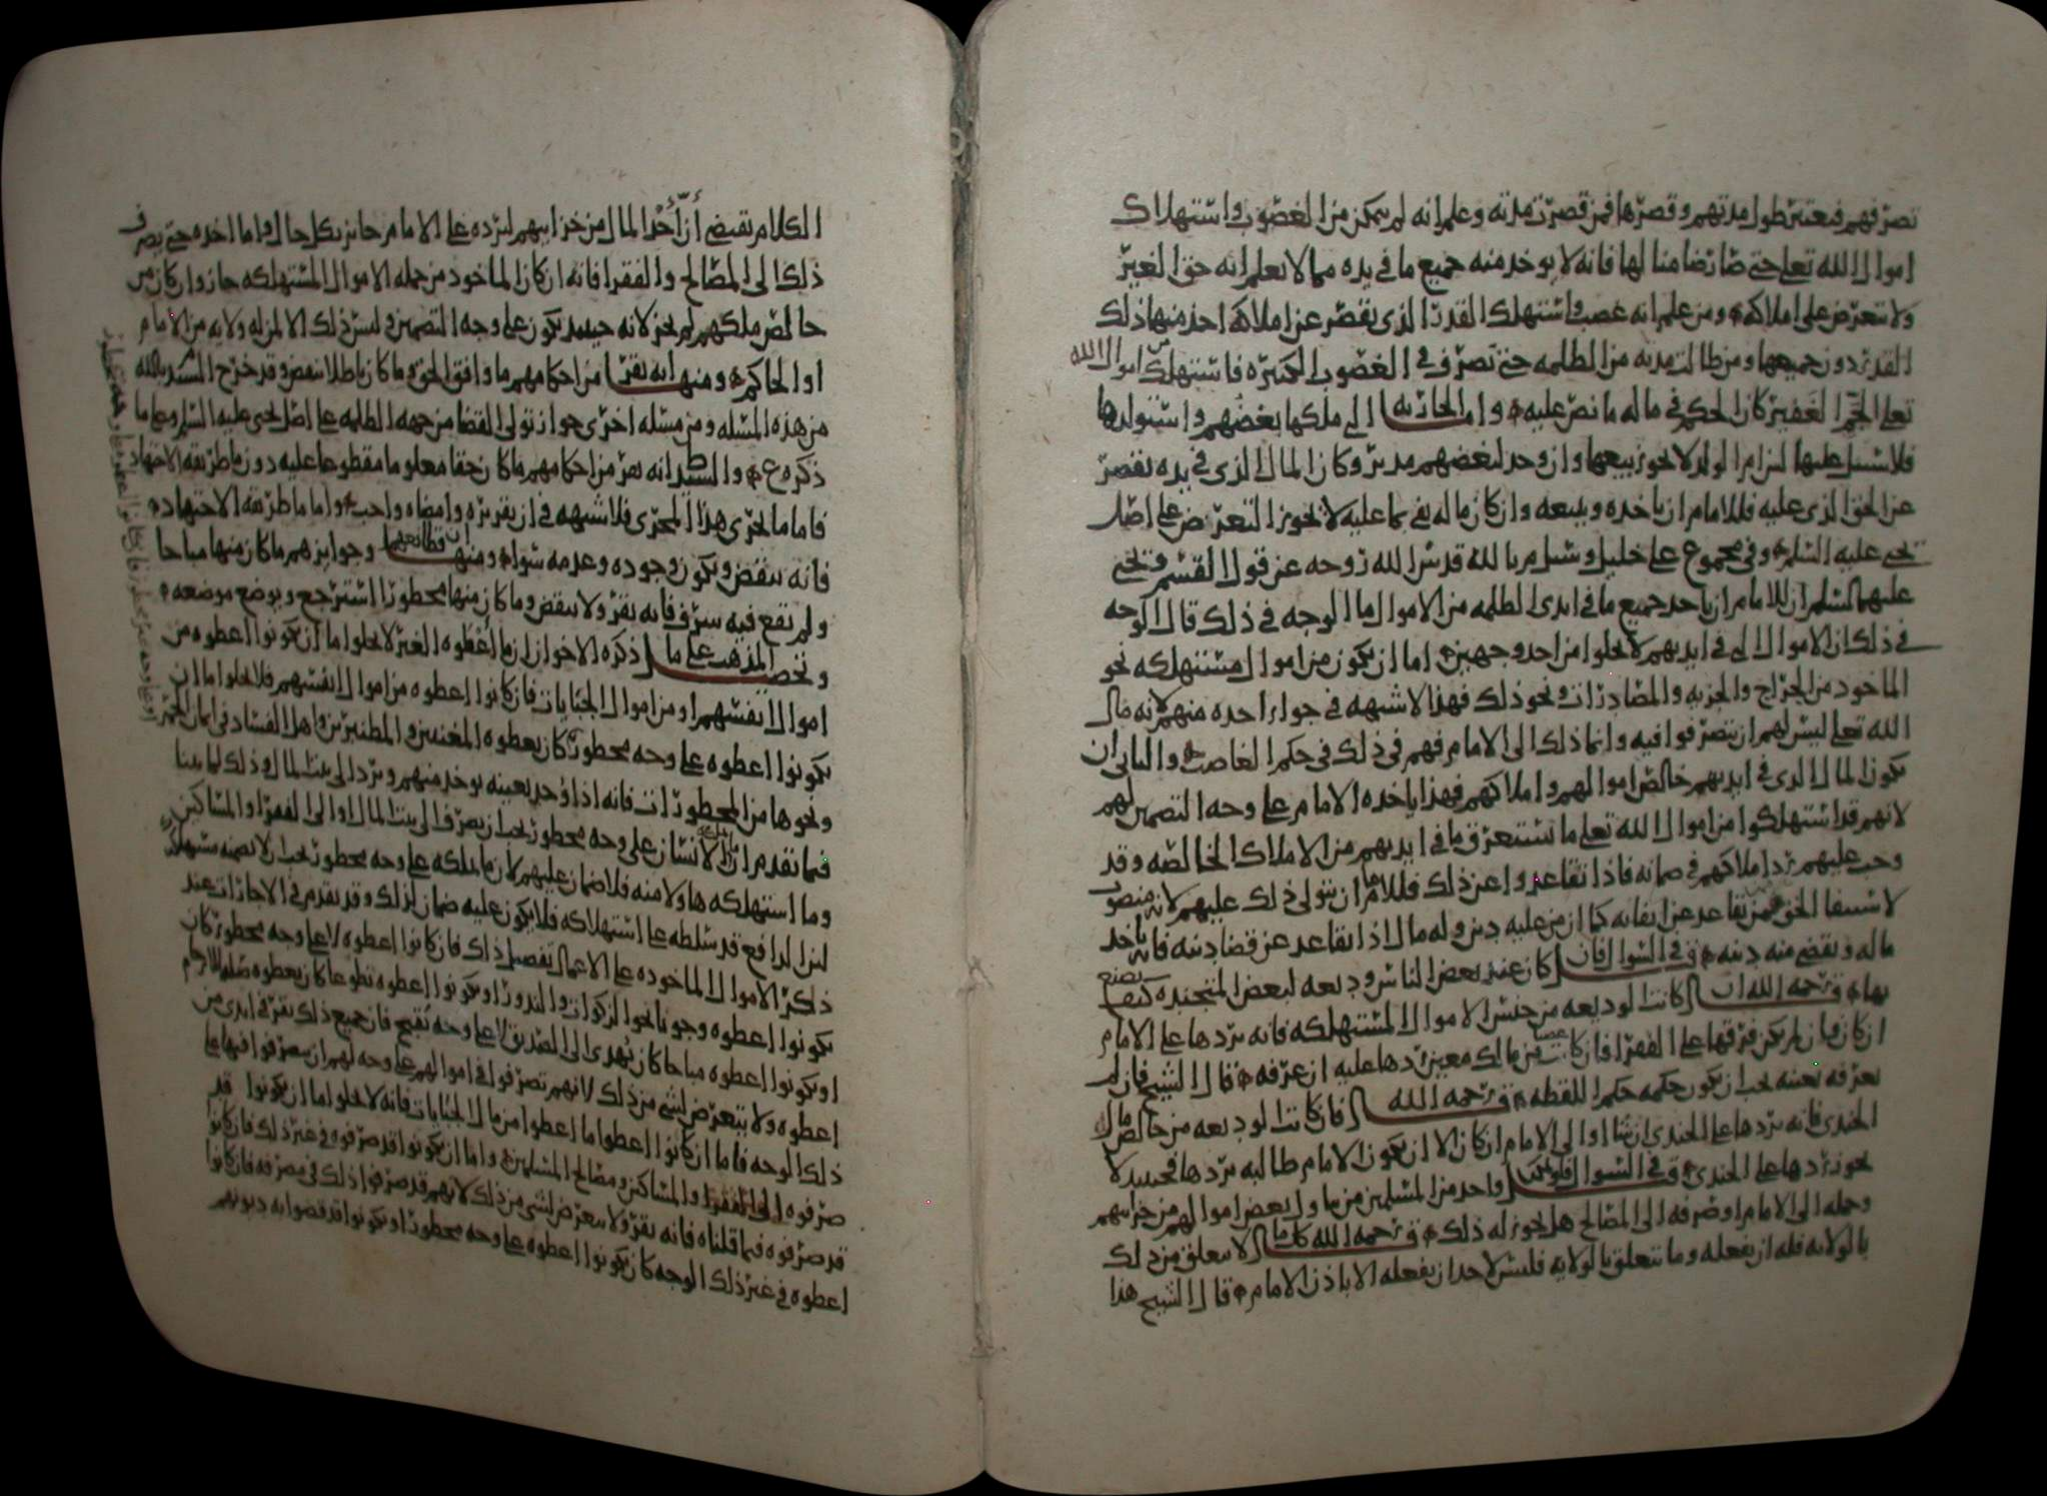 تصرفهم فيعتبر طول مدتهم وقصرها فمن قصرت مدته وعلم انه لم يتمكن من الغصوب واستهلاك
اموال الله تعالى حتى صار ضامنا لها فانه لا يوخذ منه جميع ما في يده مما لا يعلم انه حق الغير
ولا يتعرض على املاكه ومن علم انه غصب واستهلك القدر الذي يقصر عن املاكه اخذ منها ذلك
القدر دون جميعها ومن طالت مدته من الظلمه حتى تصرف في الغصوب الكثيره فاستهلك من اموال الله
تعالى الجم الغفير كان الحكم في ماله ما نص عليه واما الجاريه التي ملكها بغضهم واستولدها
فلا سبيل عليها لان ام الولد لا يجوز بيعها وان وجد لبعضهم مدبر وكان المال الذي في يده يقصر
عن الحق الذي عليه فللامام ان ياخذه ويبيعه وان كان ماله يفي بما عليه لا يجوز التعرض على اصل
يحيى عليه السلم وفي مجموع علي خليل وسيل م بالله قدس الله روحه عن قول القسم ويحيى
عليهما السلم ان للامام ان ياخذ جميع ما في ايدي الظلمه من الاموال ما الوجه في ذلك قال الوجه
في ذلك ان الاموال التي في ايديهم لا يخلوا من احد وجهين اما ان يكون من اموال مستهلكه نحو
الماخوذ من الخراج والجزيه والمصادرات ونحو ذلك فهذا لا شبهه في جواز اخذه منهم لانه مال
الله تعالى ليس لهم ان يتصرفوا فيه وانما ذلك الى الامام فهم في ذلك في حكم الغاصب والثاني ان
يكون المال الذي في ايديهم خالص اموالهم واملاكهم فهذا ياخذه الامام على وجه التضمين لهم
لانهم قد استهلكوا من اموال الله تعالى ما يستغرق ما في ايديهم من الاملاك الخالصه وقد
وجب عليهم رد املاكهم في ضمانه فاذا تقاعدوا عن ذلك فللامام ان يتولى ذلك عليهم لانه منصوب
لاستيفا الحق ممن تقاعد عن ايفائه كما ان من عليه دين وله مال اذا تقاعد عن قضا دينه فانه ياخذ
ماله ويقضي منه دينه وفي السوال فان كان عند بعض الناس وديعه لبعض المتجنده كيف يصنع
بها ق رحمه الله ان كانت الوديعه من جنس الاموال المستهلكه فانه يردها على الامام
ان كان وان لم يكن فرقها على الفقرا فان كانت غصبا من مالك معين ردها عليه ان عرفه قال الشيخ فان لم
يعرفه بعينه يجب ان يكون حكمه حكم اللقطه ق رحمه الله فان كانت الوديعه من خالص مال
الجندي فانه يردها على الجندي ان شا او الى الامام ان كان الا ان يكون الامام طالبه بردها فحينئذ لا
يجوز ردها على الجندي وفي السوال فلو تمكن واحد من المسلمين من تناول بعض اموالهم من خزائنهم
وحمله الى الامام او صرفه الى المصالح هل يجوز له ذلك ق رحمه الله كل ما لا يتعلق من ذلك
بالولايه فله ان يفعله وما يتعلق بالولايه فليس لاحد ان يفعله الا باذن الامام قال الشيخ هذا
الكلام يقتضي أن أخذ المال من خزايبهم ليرده على الامام جايز بكل حال واما اخذه حتى يصرف
ذلك الى المصالح والفقرا فانه ان كان الماخوذ من جمله الاموال المستهلكه جاز وان كان من
خالص ملكهم لم يجز لانه حينئذ يكون على وجه التضمين وليس ذلك الا لمن له ولايه من الامام
او الحاكم ومنها انه يقر من احكامهم ما وافق الحق وما كان باطلا ينقض وقد خرج السيد م بالله
من هذه المسله ومن مسله اخرى جواز تولي القضا من جهه الظلمه على اصل يحيى عليه السلم وعلى ما
ذكره ع م والسيد ط انه يقر من احكامهم ما كان حقا معلوما مقطوعا عليه دون ما طريقه الاجتهاد
فاما ما يجري هذا المجرى فلا شبهه في ان تقريره وامضاه واجب واما ما طريقه الاجتهاد
فانه ينقض ويكون وجوده وعدمه سوا ومنها ان قطائعهم وجوايزهم ما كان منها مباحا
ولم يقع فيه سرف فانه يقر ولا ينقض وما كان منها محظورا استرجع ويوضع موضعه
وتخصيل المذهب على ما ذكره الاخوان ان ما اعطوه الغير لا يخلوا ما ان يكونوا اعطوه من
اموال انفسهم او من اموال الجبايات فان كانوا اعطوه من اموال انفسهم فلا يخلوا ما ان
يكونوا اعطوه على وجه محظور كان يعطوه المغنين والمطنبرين واهل الفساد في اثمان الخمر
ونحوها من المحظورات فانه اذا وجد بعينه يوخذ منهم ويرد الى بيت المال وذلك لما بينا
فيما تقدم ان ما ملكه الانسان على وجه محظور يجب ان يصرف الى بيت المال او الى الفقرا والمساكين
وما استهلكه هاولا منه فلا ضمان عليهم لان ما ملكه على وجه محظور يجب ان لا يضمنه مستهلكه
لان الدافع قد سلطه على استهلاكه فلا يكون عليه ضمان لذلك وقد تقدم في الاجارات عند
ذكر الاموال الماخوذه على الاعمال تفصيل ذلك فان كانوا اعطوه لا على وجه محظور كان
يكونوا اعطوه وجوبا نحو الزكوات والنذور او يكونوا اعطوه تطوعا كان يعطوه صله للارحام
او يكونوا اعطوه مباحا كان يهدى الى الصديق لا على وجه يقبح فان جميع ذلك يقر في ايدي من
اعطوه ولا يتعرض لشي من ذلك لانهم تصرفوا في اموالهم على وجه لهم ان يتصرفوا فيها على
ذلك الوجه فاما ان كانوا اعطوا ما اعطوا من مال الجبايات فانه لا يخلوا اما ان يكونوا قد
صرفوه الى الفقرا والمساكين ومصالح المسلمين واما ان يكونوا قد صرفوه في غير ذلك فان كانوا
قد صرفوه فيما قلناه فانه يقر ولا يتعرض لشي من ذلك لانهم قد صرفوا ذلك في مصرفه فان كانوا
اعطوه في غير ذلك الوجه كان يكونوا اعطوه على وجه محظور او يكونوا قد قضوا به ديونهم